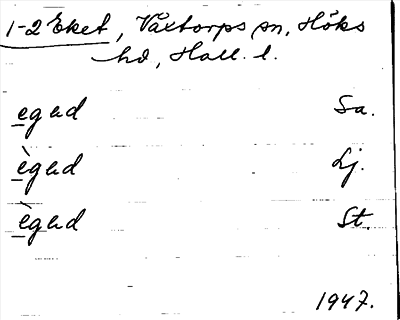 1-2 Eket, Våxtorps sn, Höks
hd, Hall. l.
egəd Sa.
ègəd Lj.
ègəd St.
1947.